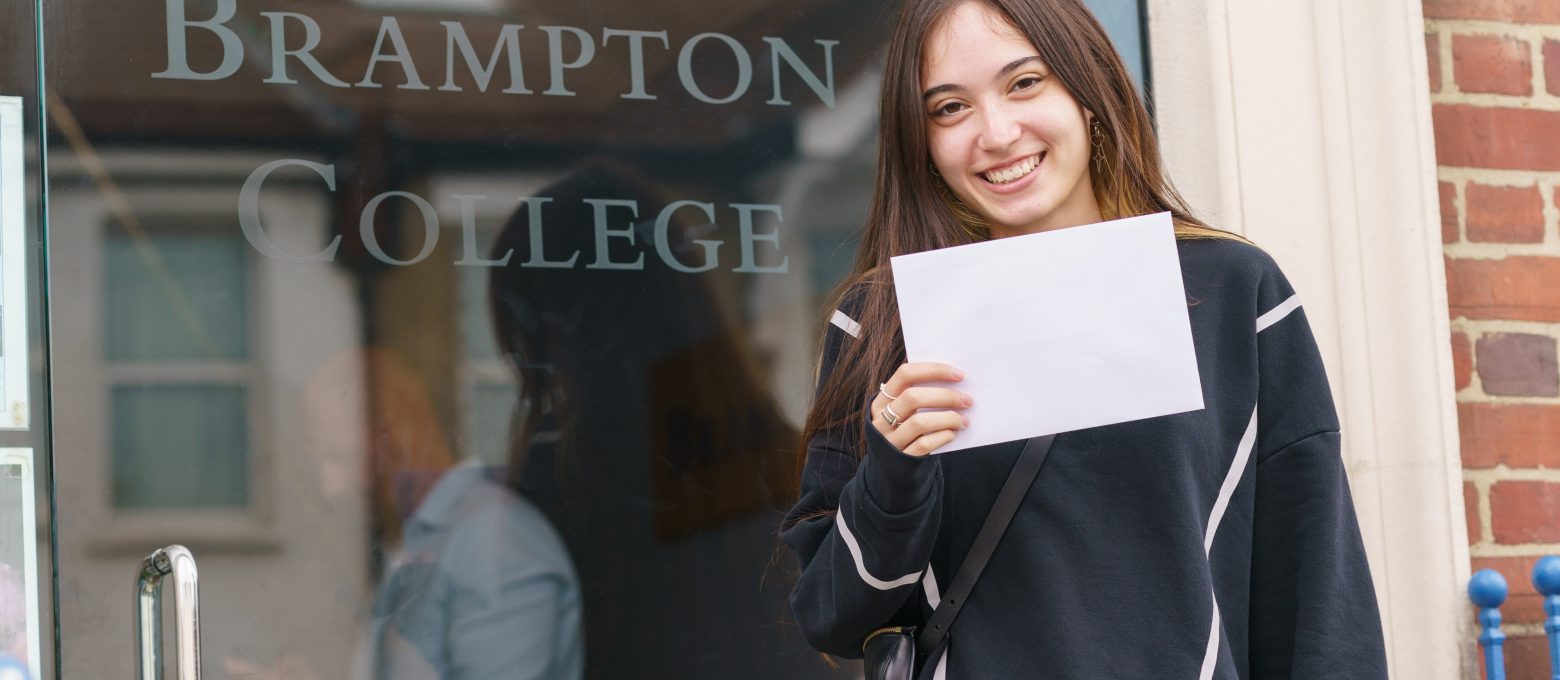 BRAMPTON
COLLEGE